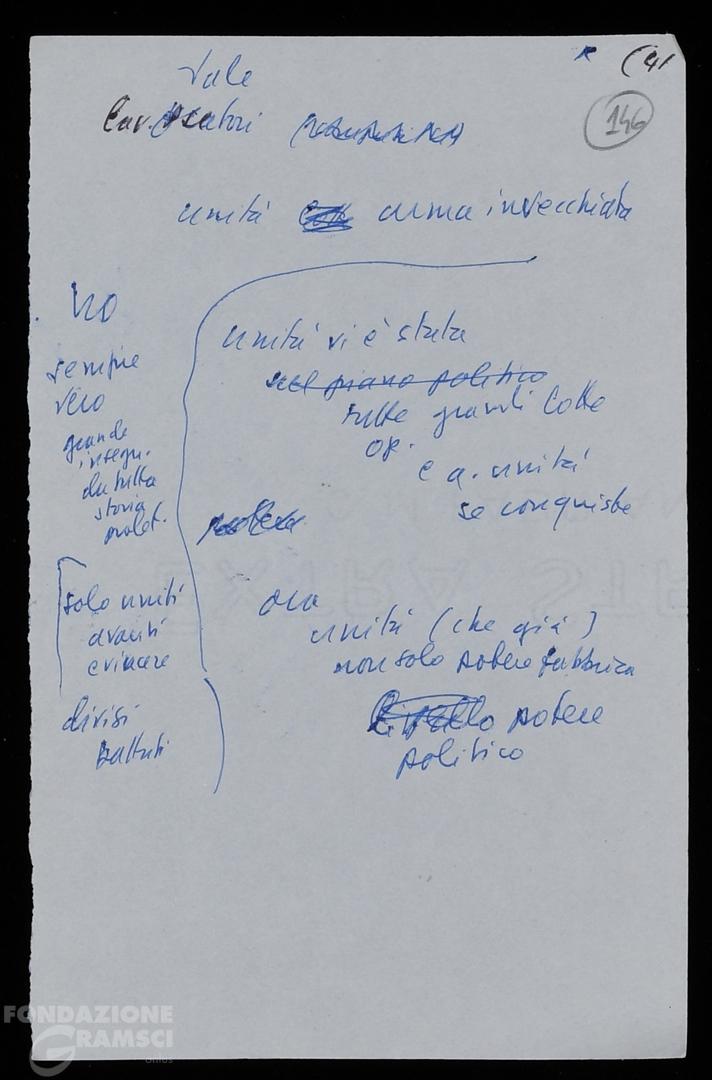 (41
146
Vale
Lavoratori
unità arma invecchiata
no
sempre
vero
grande
insegn.
da tutta
storia
prolet.
solo uniti
avanti
e vincere
divisi
battuti
unità vi è stata
nel piano politico
tutte grandi lotte
op.
e q. unità
se conquiste
ora
unità (che già)
non solo potere fabbrica
potere
politico
FONDAZIONE
GRAMSCI
onlus